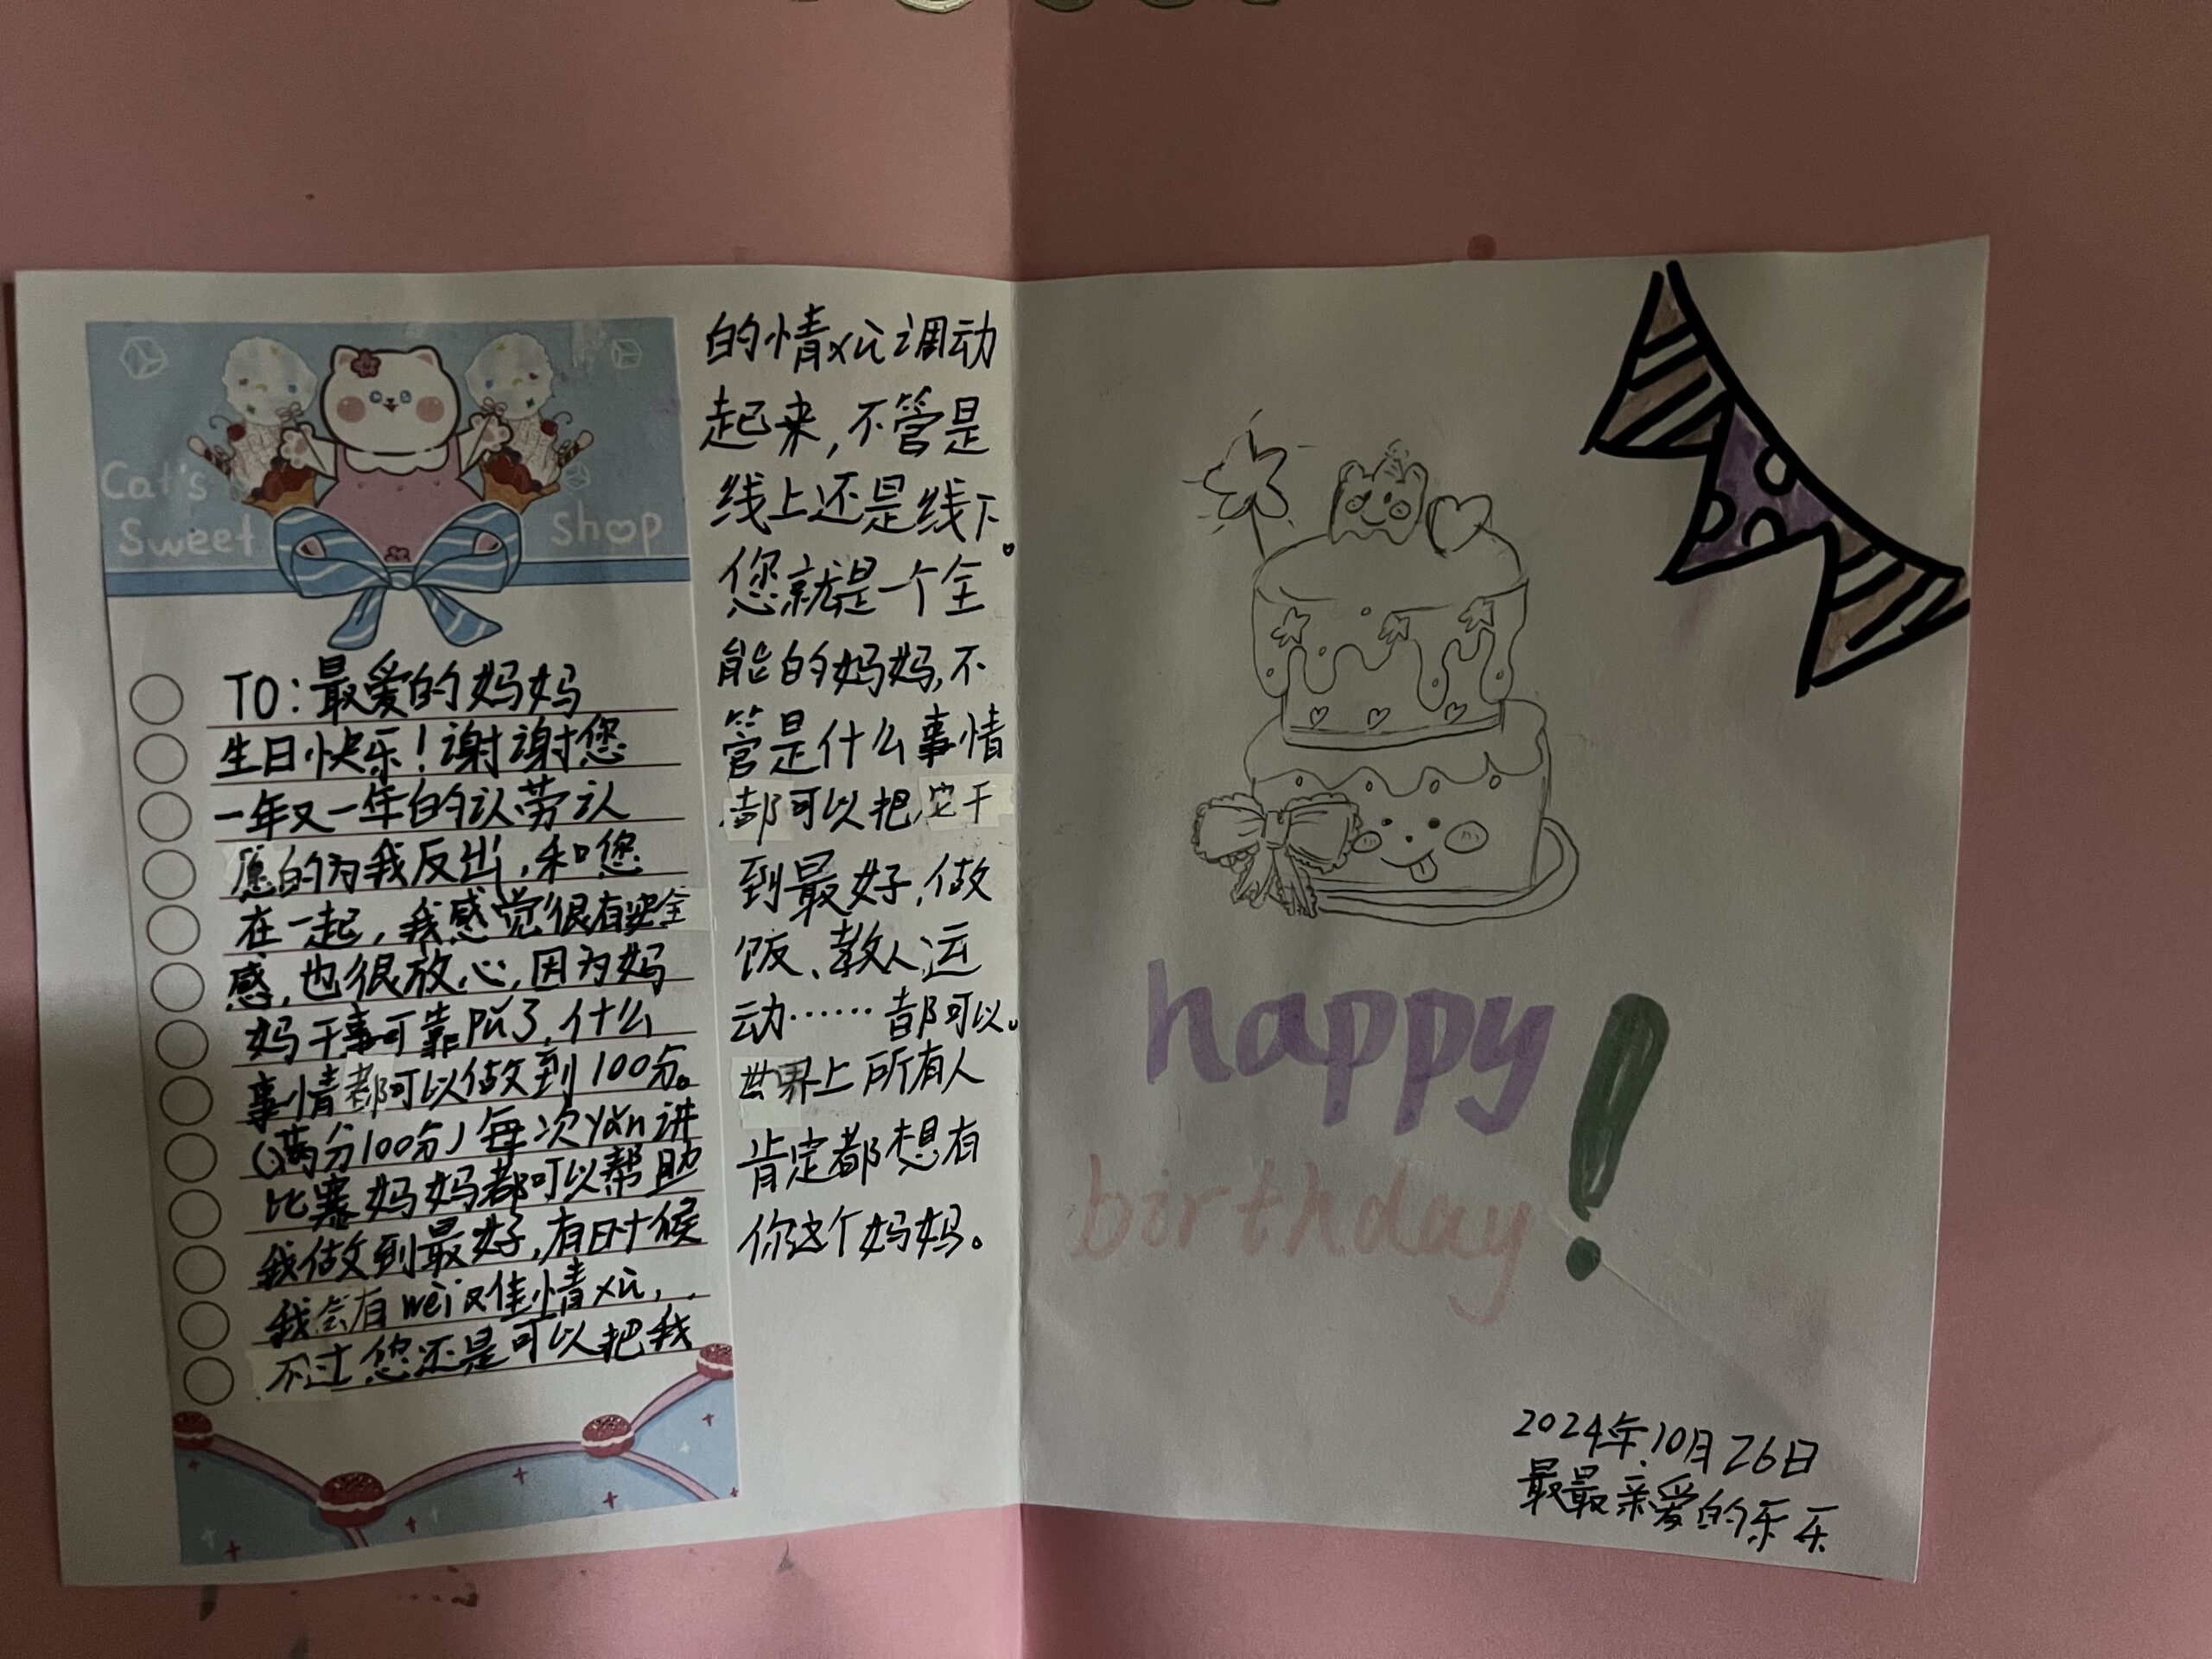 Cat's
Sweet
Shop
TO:最爱的妈妈
生日快乐!谢谢您
一年又一年的认劳认
愿的为我反出,和您
在一起,我感觉很有安全
感,也很放心,因为妈
妈干事可靠pù了,什么
事情都可以做到100分。
(满分100分)每次yǎn讲
比赛妈妈都可以帮助
我做到最好,有时候
我会有wei又佳情xù,
不过您还是可以把我
的情xù调动
起来,不管是
线上还是线下。
您就是一个全
能的妈妈,不
管是什么事情
都可以把它干
到最好,做
饭、教人运
动……都可以。
世界上所有人
肯定都想有
你这个妈妈。
happy
birthday!
2024年10月26日
最最亲爱的乐乐